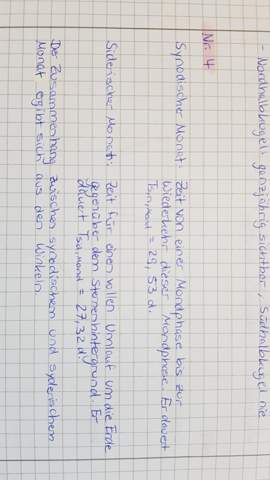 - Nordhalbkugel: ganzjährig sichtbar, Südhalbkugel nie
Nr. 4
Synodischer Monat: Zeit von einer Mondphase bis zur
Wiederkehr dieser Mondphase. Er dauert
Tsyn,Mond = 29,53 d.
Siderischer Monat: Zeit für einen vollen Umlauf um die Erde
gegenüber dem Sternenhintergrund. Er
dauert Tsid,Mond = 27,32 d.
Der Zusammenhang zwischen synodischem und syderischem
Monat ergibt sich aus den Winkeln